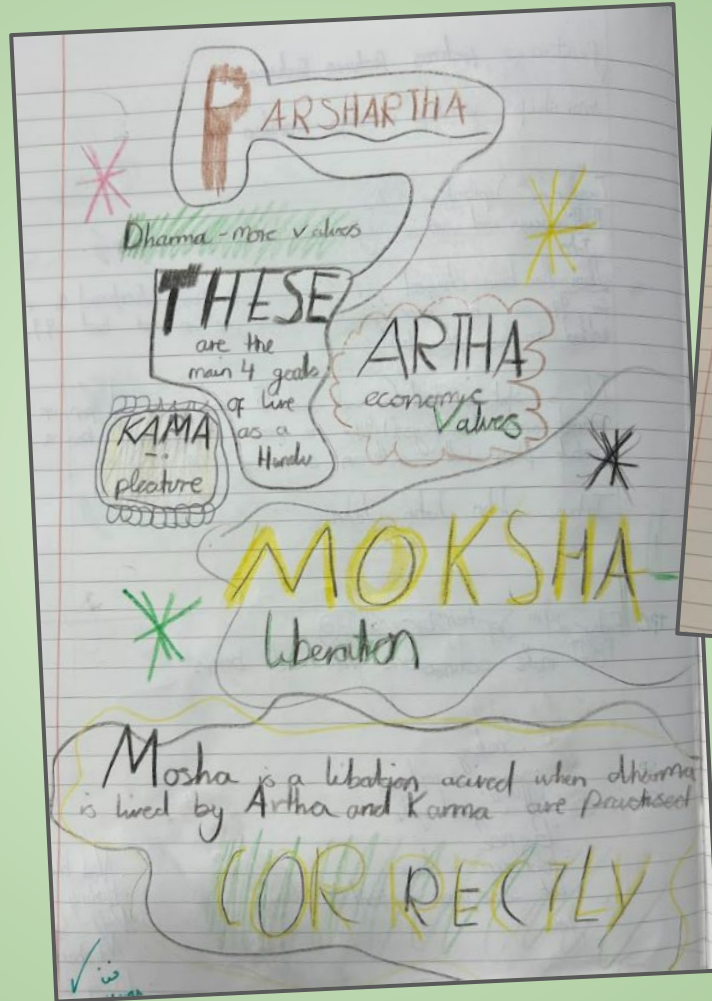 PARSHARTHA
Dharma - more values
THESE
are the
main 4 goals
of live
as a
Hindu
ARTHA
economic
Values
KAMA
pleature
MOKSHA
liberation
Mosha is a libation acured when dharma
is lived by Artha and Karma are practised
CORRECTLY